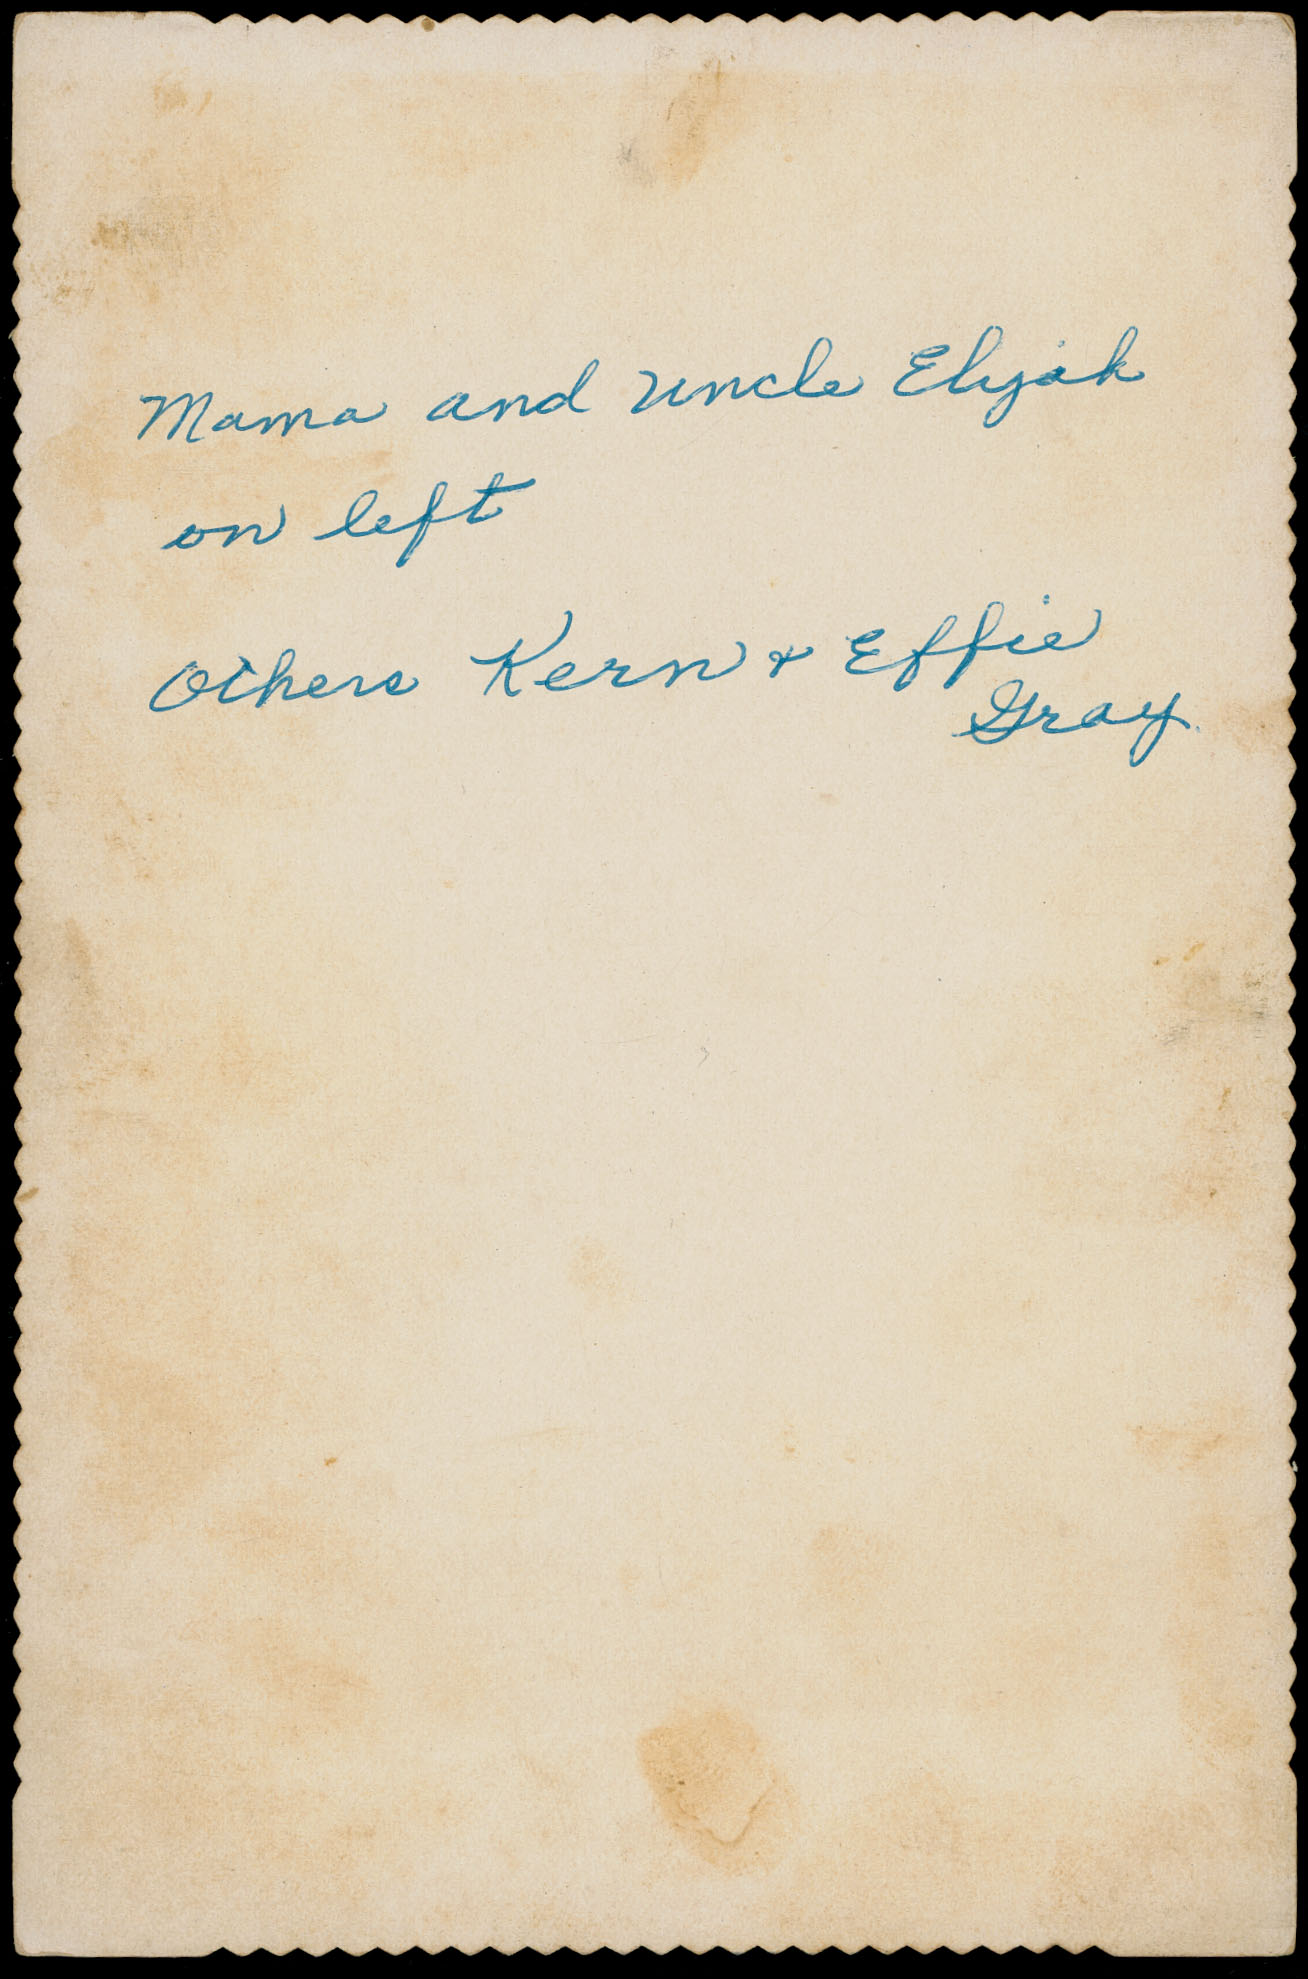 Mama and Uncle Elijah
on left
Others Kern & Effie
Gray